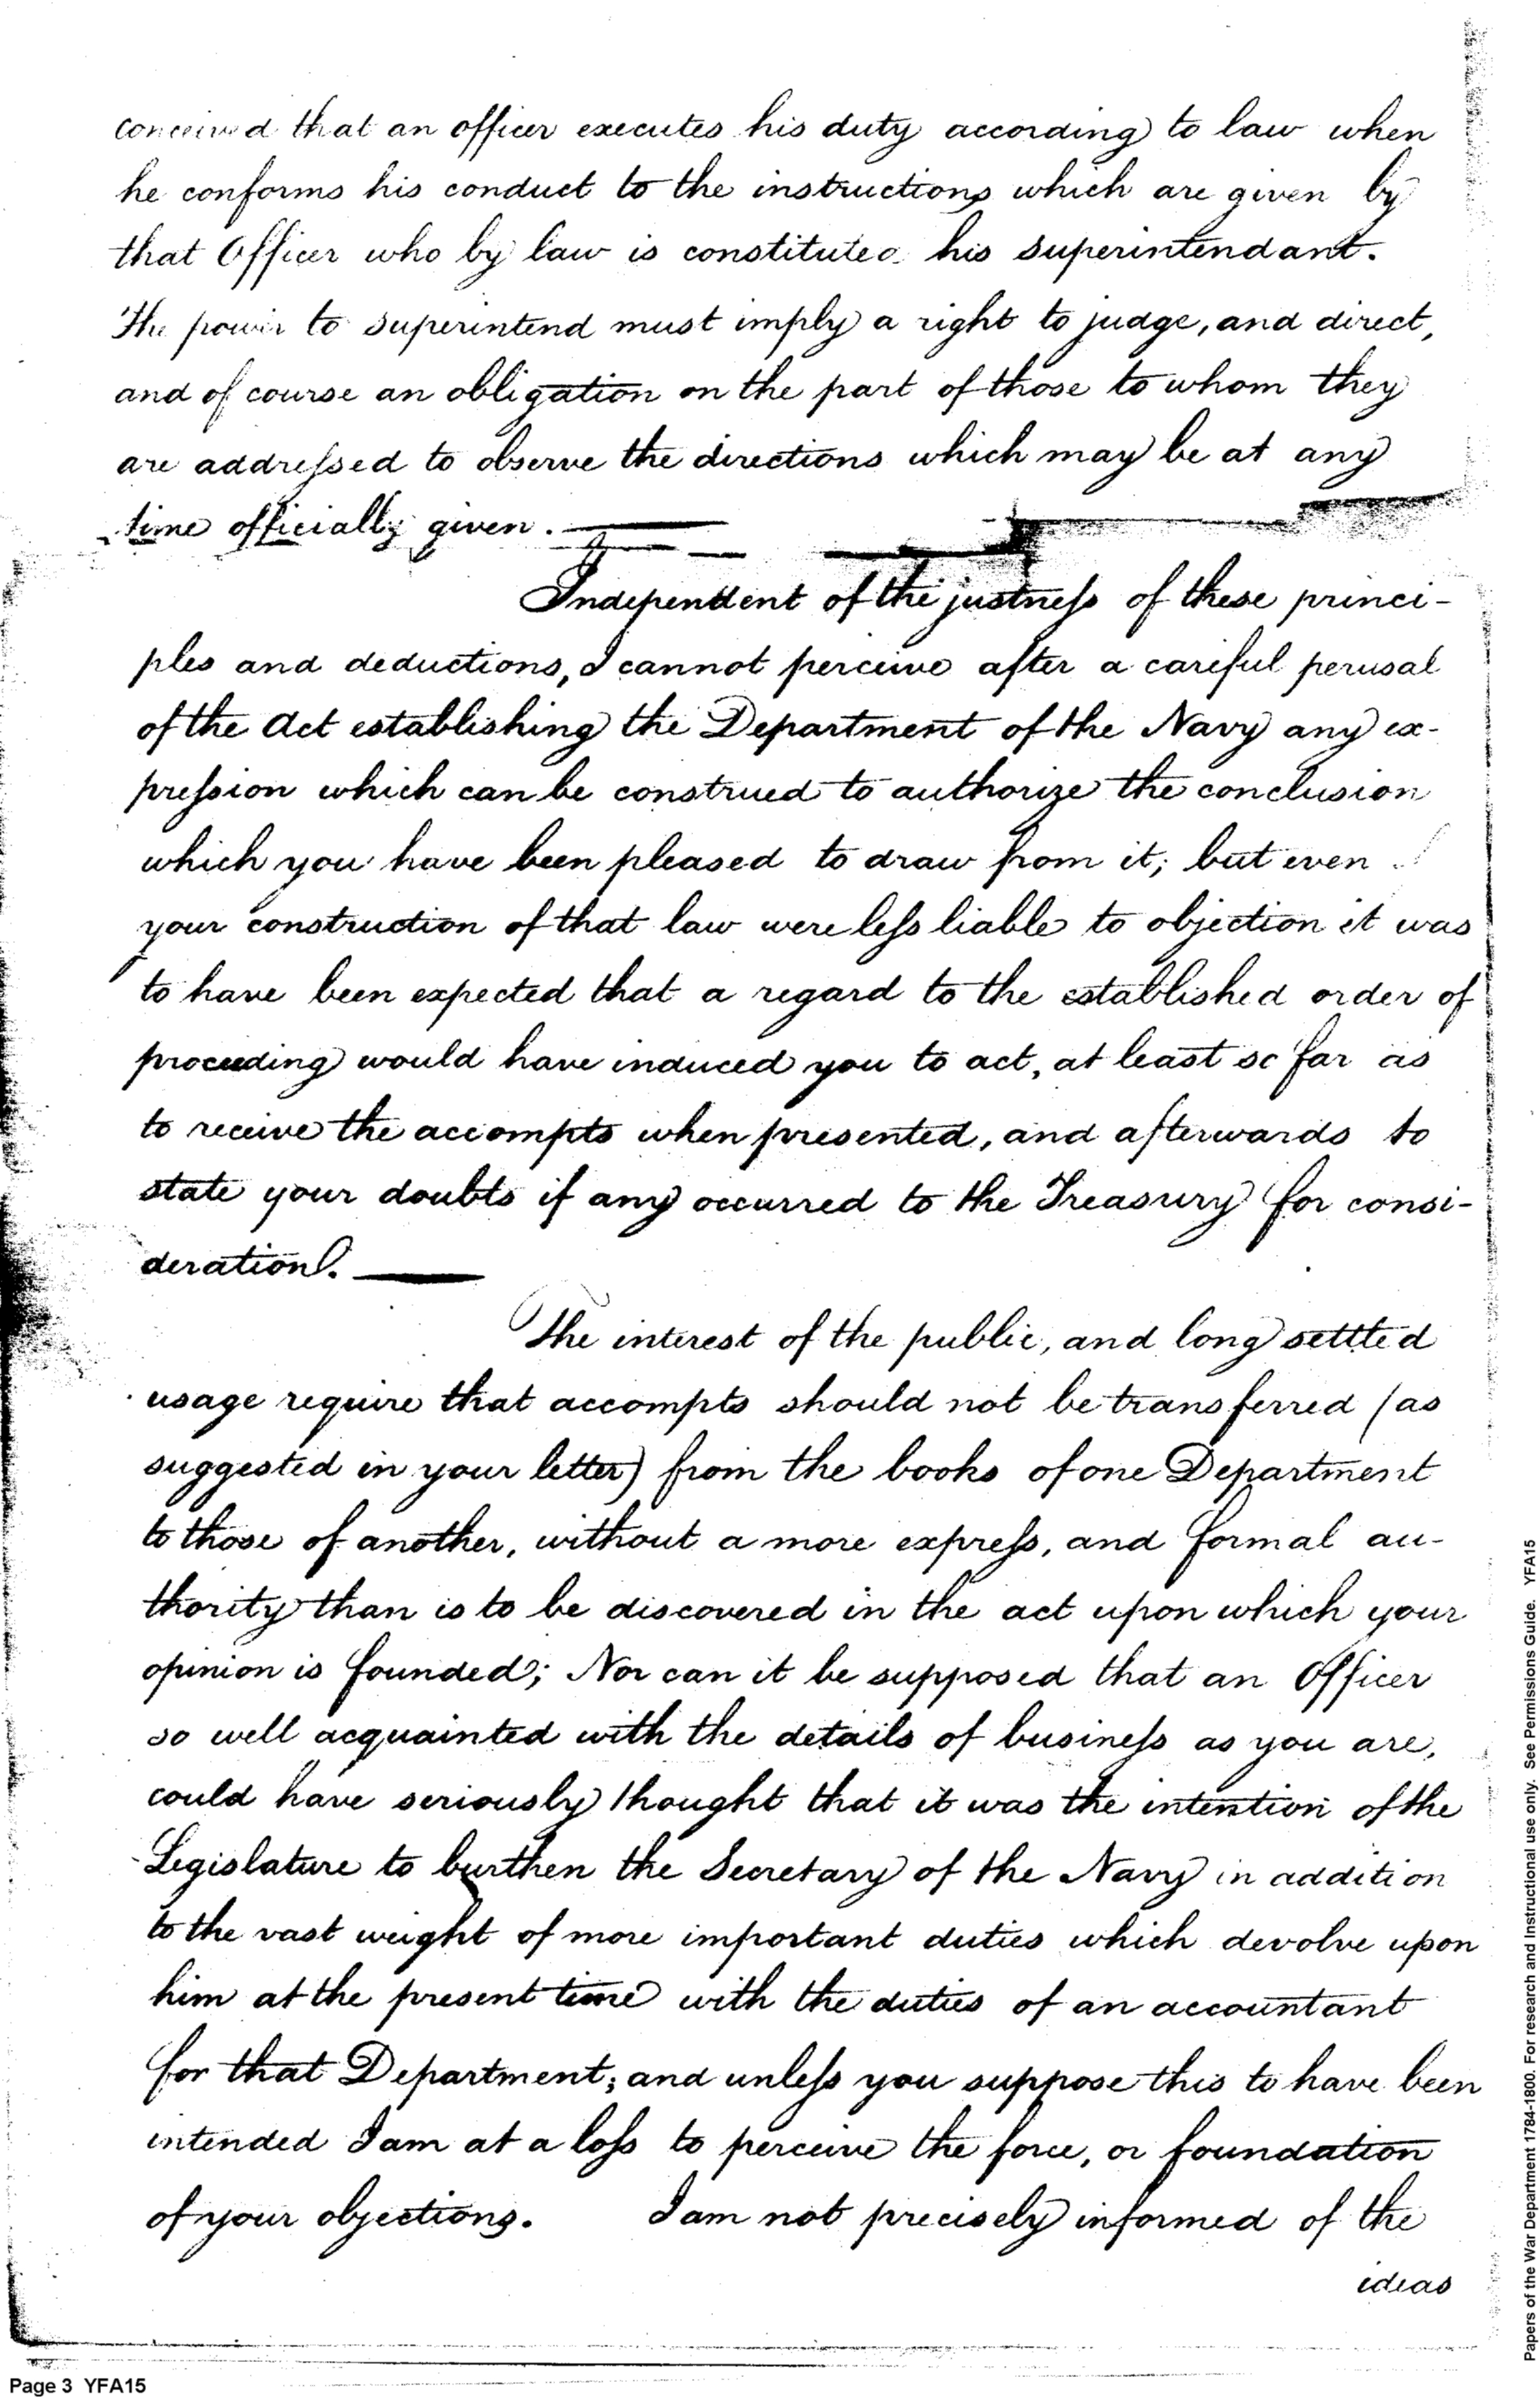 conceived that an officer executes his duty according to law when
he conforms his conduct to the instructions which are given by
that Officer who by law is constituted his superintendant.
The power to superintend must imply a right to judge, and direct,
and of course an obligation on the part of those to whom they
are addressed to observe the directions which may be at any
time officially given.
Independent of the justness of these princi-
ples and deductions, I cannot perceive after a careful perusal
of the Act establishing the Department of the Navy any ex-
pression which can be construed to authorize the conclusion
which you have been pleased to draw from it; but even
your construction of that law were less liable to objection it was
to have been expected that a regard to the established order of
proceeding would have induced you to act, at least so far as
to receive the accompts when presented, and afterwards to
state your doubts if any occurred to the Treasury for consi-
deration.
The interest of the public, and long settled
usage require that accompts should not be transferred (as
suggested in your letter) from the books of one Department
to those of another, without a more express, and formal au-
thority than is to be discovered in the act upon which your
opinion is founded; Nor can it be supposed that an Officer
so well acquainted with the details of business as you are,
could have seriously thought that it was the intention of the
Legislature to burthen the Secretary of the Navy in addition
to the vast weight of more important duties which devolve upon
him at the present time with the duties of an accountant
for that Department; and unless you suppose this to have been
intended I am at a loss to perceive the force, or foundation
of your objections. I am not precisely informed of the
ideas
Page 3 YFA15
Papers of the War Department 1784-1800. For research and Instructional use only. See Permissions Guide. YFA15